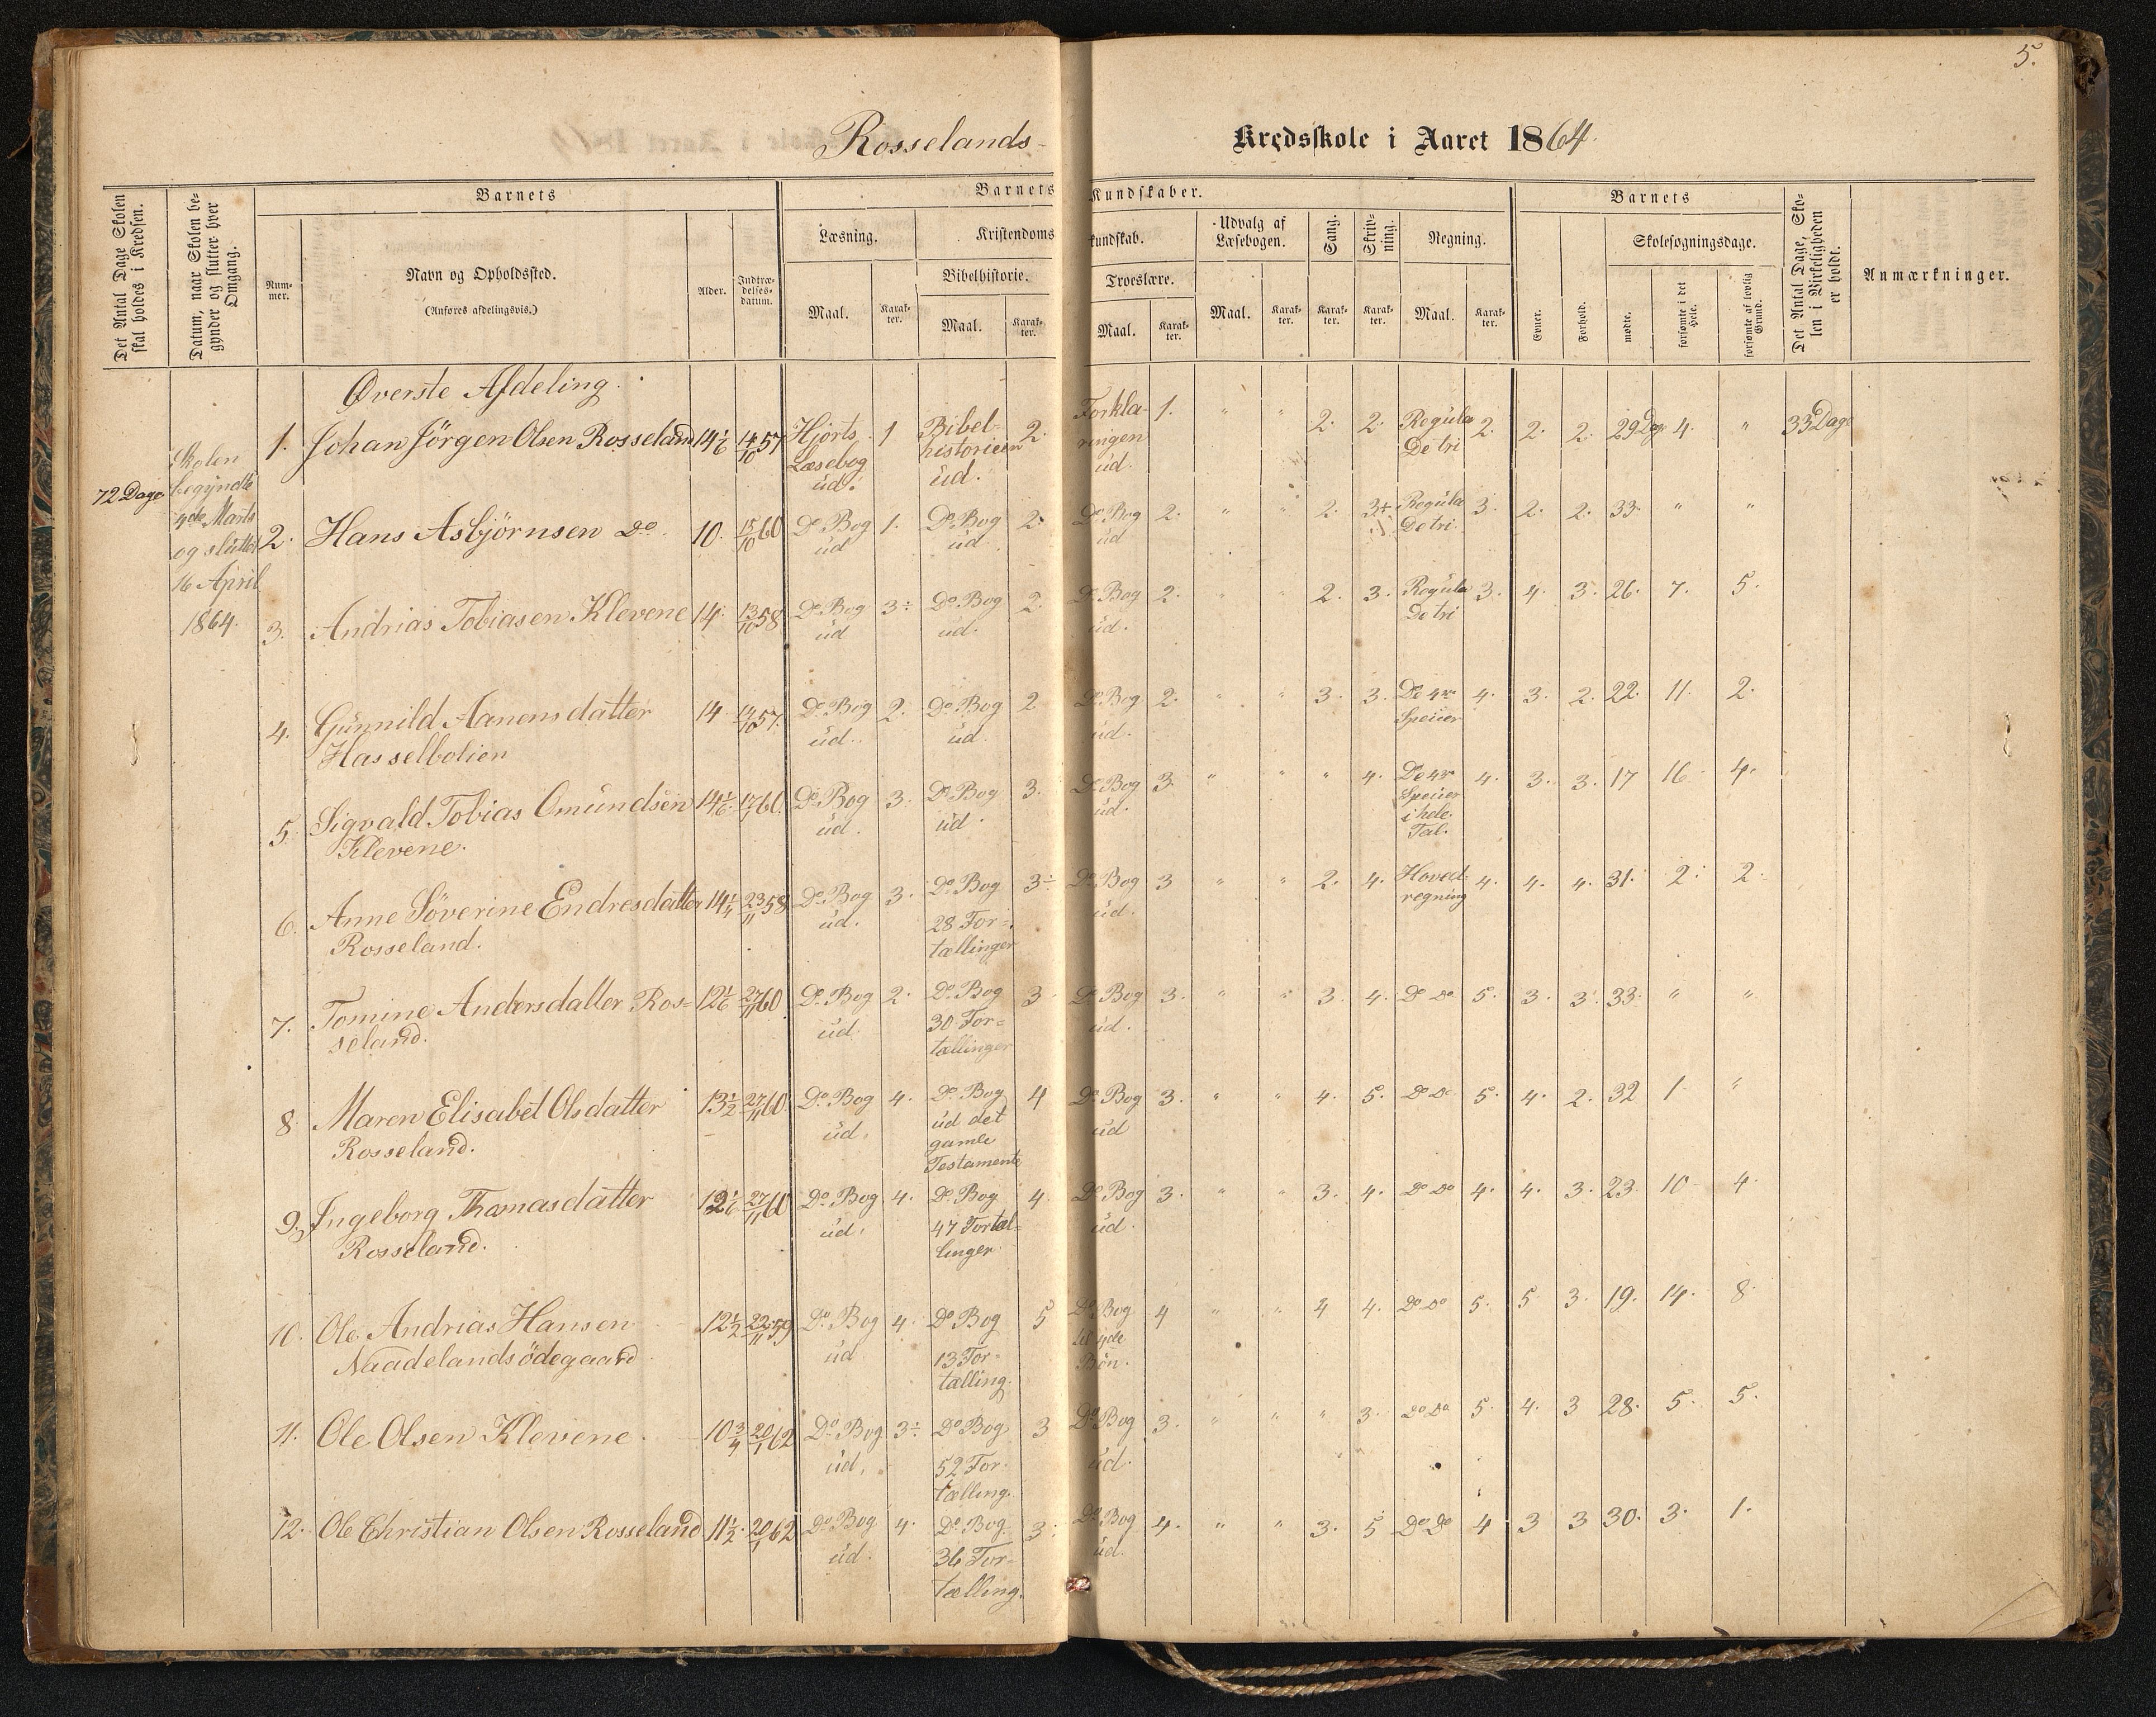 5.
Rosselands- Kredsskole i Aaret 1864.
Det Antal Dage Skolen skal holdes i Kredsen.
Datum, naar Skolen begynder og slutter hver Omgang.
Barnets
Nummer.
Navn og Opholdssted.
(Anføres afdelingsvis.)
Alder.
Indtrædelsesdatum.
Barnets Kundskaber.
Læsning.
Maal.
Karakter.
Kristendomskundskab.
Bibelhistorie.
Maal.
Karakter.
Troeslære.
Maal.
Karakter.
Udvalg af Læsebogen.
Maal.
Karakter.
Sang.
Karakter.
Skrivning.
Karakter.
Regning.
Maal.
Karakter.
Barnets
Evner.
Forhold.
Skolesøgningsdage.
mødte.
forsømte i det Hele.
forsømte af lovlig Grund.
Det Antal Dage, Skolen i Virkeligheden er holdt.
Anmærkninger.
72 Dage
Skolen
begyndte
4de Marts
og sluttet
16 April
1864.
Øverste Afdeling.
1. Johan Jörgen Olsen Rosseland 14 1/6 14/10 57 Hjorts Læsebog ud. 1 Bibelhistorien ud. 2. Forklaringen ud. 1. " " 2. 2. Regula De tri 2. 2. 2. 29 Dage 4. " 33 Dage
2. Hans Asbjörnsen Do 10. 15/10 60 Do Bog ud 1. Do Bog ud. 2. Do Bog ud 2. " " 2. 3+ Regula De tri. 3. 2. 2. 33. " "
3. Andrias Tobiasen Klevene 14. 13/10 58 Do Bog ud 3÷ Do Bog ud. 2. Do Bog ud. 2. " " 2. 3. Regula De tri 3. 4. 3. 26. 7. 5.
4. Gunnild Aanensdatter Hasselbolien 14 14/10 57. Do Bog ud. 2. Do Bog ud. 2 Do Bog ud. 2. " " 3. 3. De 4re Speicer 4. 3. 2. 22. 11. 2.
5. Sigvald Tobias Omundsen Klevene. 14 1/6 17/1 60. Do Bog ud. 3. Do Bog ud. 3. Do Bog ud. 3. " " " 4. De 4re Speicer i hele Tal. 4. 3. 3. 17 16 4.
6. Anne Söverine Endresdatter Rosseland. 14 1/4 23/11 58 Do Bog ud. 3. Do Bog 28 Fortællinger 3÷ Do Bog ud. 3 " " 2. 4. Hovedregning 4. 4. 4. 31. 2. 2.
7. Tomine Andersdatter Rosseland. 12 1/6 27/11 60 Do Bog ud. 2. Do Bog 30 Fortællinger 3 Do Bog ud. 3. " " 3. 4. Do Do 5. 3. 3. 33. " "
8. Maren Elisabet Olsdatter Rosseland. 13 1/2 27/11 60. Do Bog ud. 4. Do Bog ud det gamle Testamente 4 Do Bog ud 3. " " 4. 5. Do Do 5. 4. 2. 32 1 "
9. Ingeborg Thomasdatter Rosseland. 12 1/6 27/11 60 Do Bog ud. 4. Do Bog 47 Fortællinger. 4. Do Bog ud. 3. " " 3. 4. Do Do 4. 4. 3. 23. 10 4.
10. Ole Andrias Hansen Naadelandsödegaard 12 1/2 22/11 59 Do Bog ud 4. Do Bog 13 Fortælling. 5 Do Bog til 4de Bön. 4 " " 4 4. Do Do 5. 5 3. 19. 14. 8.
11. Ole Olsen Klevene. 10 3/4 20/1 62 Do Bog ud. 3÷ Do Bog 52 Fortælling. 3 Do Bog ud. 3. " " " 3. Do Do 5. 4. 3 28. 5. 5.
12. Ole Christian Olsen Rosseland 11 1/2 20/1 62 Do Bog ud. 4. Do Bog 36 Fortælling. 3. Do Bog ud. 4. " " 3. 5 Do Do 4 3 3 30. 3. 1.